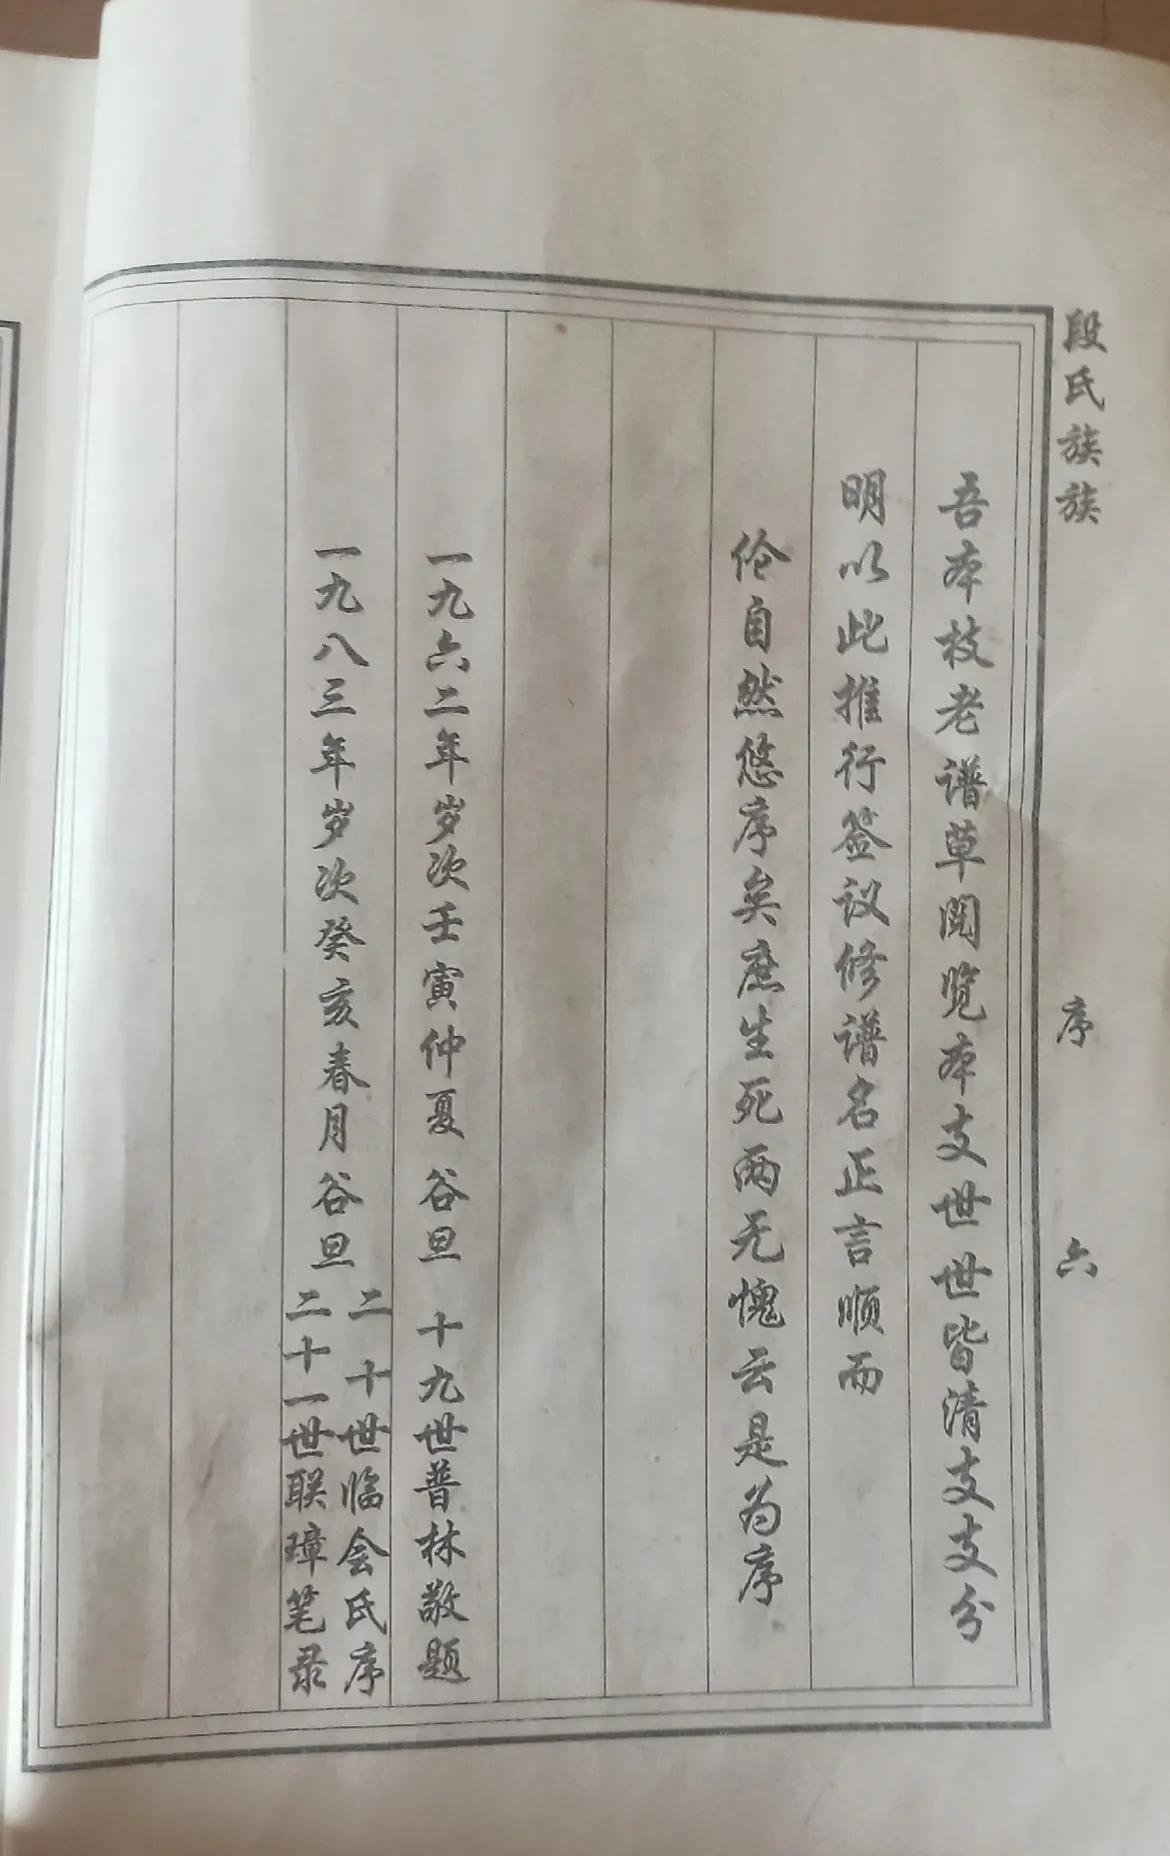 段氏族族
序
六
吾本枝老谱草阅览本支世世皆清支支分
明以此推行签议修谱名正言顺而
伦自然悠序矣庶生死两无愧云是为序
一九六二年岁次壬寅仲夏谷旦 十九世普林敬题
一九八三年岁次癸亥春月谷旦
二十世临会氏序
二十一世联璋笔录